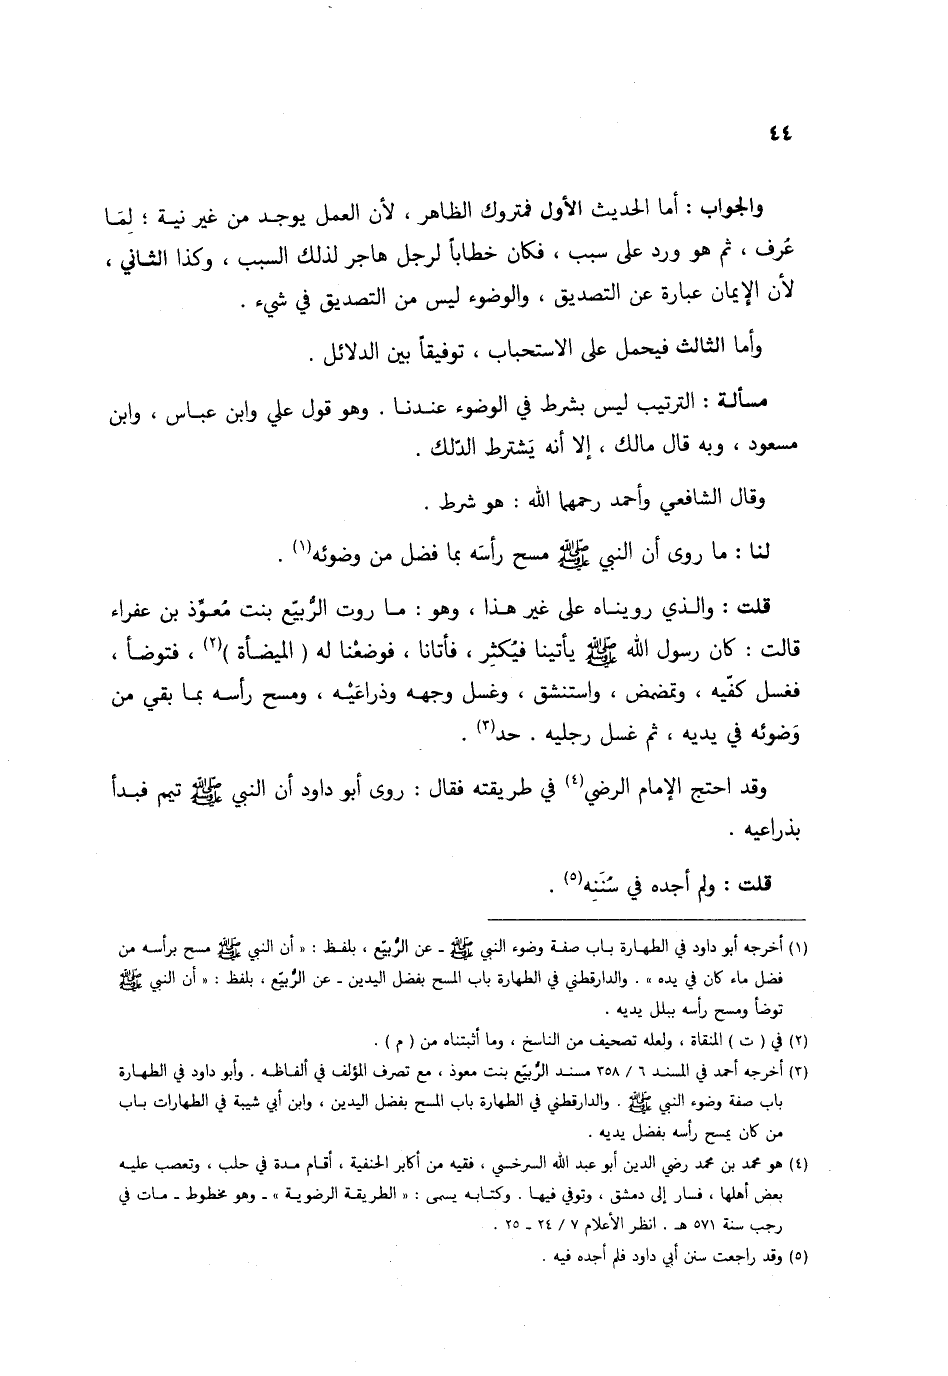 ٤٤
والجواب : أما الحديث الأول فمتروك الظاهر ، لأن العمل يوجد من غير نية ؛ لِمَا
عُرف ، ثم هو ورد على سبب ، فكان خطاباً لرجل هاجر لذلك السبب ، وكذا الثاني ،
لأن الإيمان عبارة عن التصديق ، والوضوء ليس من التصديق في شيء .
وأما الثالث فيحمل على الاستحباب ، توفيقاً بين الدلائل .
مسألة : الترتيب ليس بشرط في الوضوء عندنا . وهو قول علي وابن عباس ، وابن
مسعود ، وبه قال مالك ، إلا أنه يَشترط الدّلك .
وقال الشافعي وأحمد رحمهما الله : هو شرط .
لنا : ما روى أن النبي ﷺ مسح رأسَه بما فضل من وضوئه(١) .
قلت : والذي رويناه على غير هذا ، وهو : ما روت الرُّبيّع بنت مُعوِّذ بن عفراء
قالت : كان رسول الله ﷺ يأتينا فيُكثِر ، فأتانا ، فوضعْنا له ( الميضأة )(٢) ، فتوضأ ،
فغسل كفّيه ، وتمضمض ، واستنشق ، وغسل وجهه وذراعَيْه ، ومسح رأسه بما بقي من
وَضوئه في يديه ، ثم غسل رجليه . حد(٣) .
وقد احتج الإمام الرضي(٤) في طريقته فقال : روى أبو داود أن النبي ﷺ تيمم فبدأ
بذراعيه .
قلت : ولم أجده في سُنَنِه(٥) .
(١) أخرجه أبو داود في الطهارة باب صفة وضوء النبي ﷺ - عن الرُّبيّع ، بلفظ : « أن النبي ﷺ مسح برأسه من
فضل ماء كان في يده » . والدارقطني في الطهارة باب المسح بفضل اليدين - عن الرُّبيّع ، بلفظ : « أن النبي ﷺ
توضأ ومسح رأسه ببلل يديه .
(٢) في ( ت ) المنقاة ، ولعله تصحيف من الناسخ ، وما أثبتناه من ( م ) .
(٣) أخرجه أحمد في المسند ٦ / ٣٥٨ مسند الرُّبيّع بنت معوذ ، مع تصرف المؤلف في ألفاظه . وأبو داود في الطهارة
باب صفة وضوء النبي ﷺ . والدارقطني في الطهارة باب المسح بفضل اليدين ، وابن أبي شيبة في الطهارات باب
من كان يمسح رأسه بفضل يديه .
(٤) هو محمد بن محمد رضي الدين أبو عبد الله السرخسي ، فقيه من أكابر الحنفية ، أقام مدة في حلب ، وتعصب عليه
بعض أهلها ، فسار إلى دمشق ، وتوفي فيها . وكتابه يسمى : « الطريقة الرضوية » - وهو مخطوط - مات في
رجب سنة ٥٧١ هـ . انظر الأعلام ٧ / ٢٤ - ٢٥ .
(٥) وقد راجعت سنن أبي داود فلم أجده فيه .